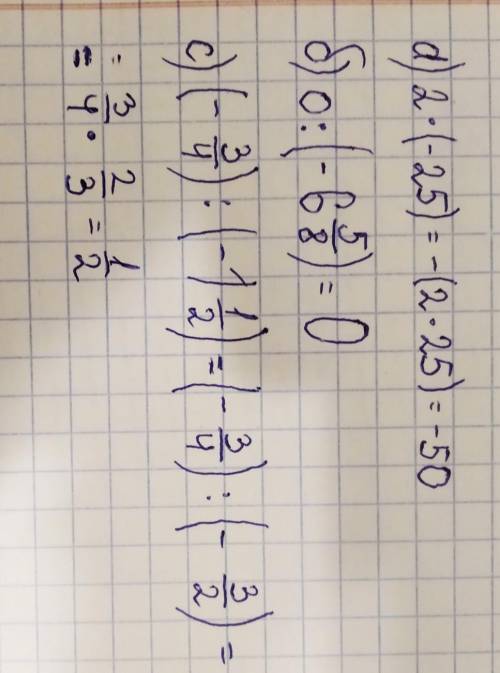 а) 2·(-25)=-(2·25)=-50
б) 0:(-6 5/8)=0
с) (-3/4):(-1 1/2)=(-3/4):(-3/2)=
=3/4·2/3=1/2